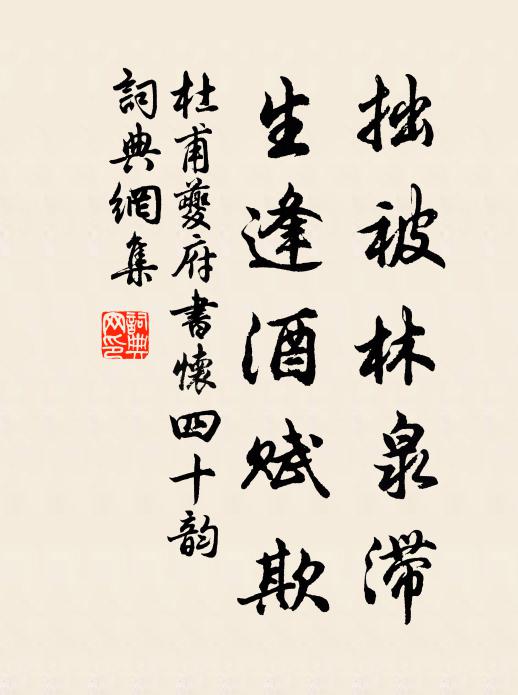 拙被林泉滞
生逢酒赋欺
杜甫夔府書懷四十韵
詞典網集
詞典網印